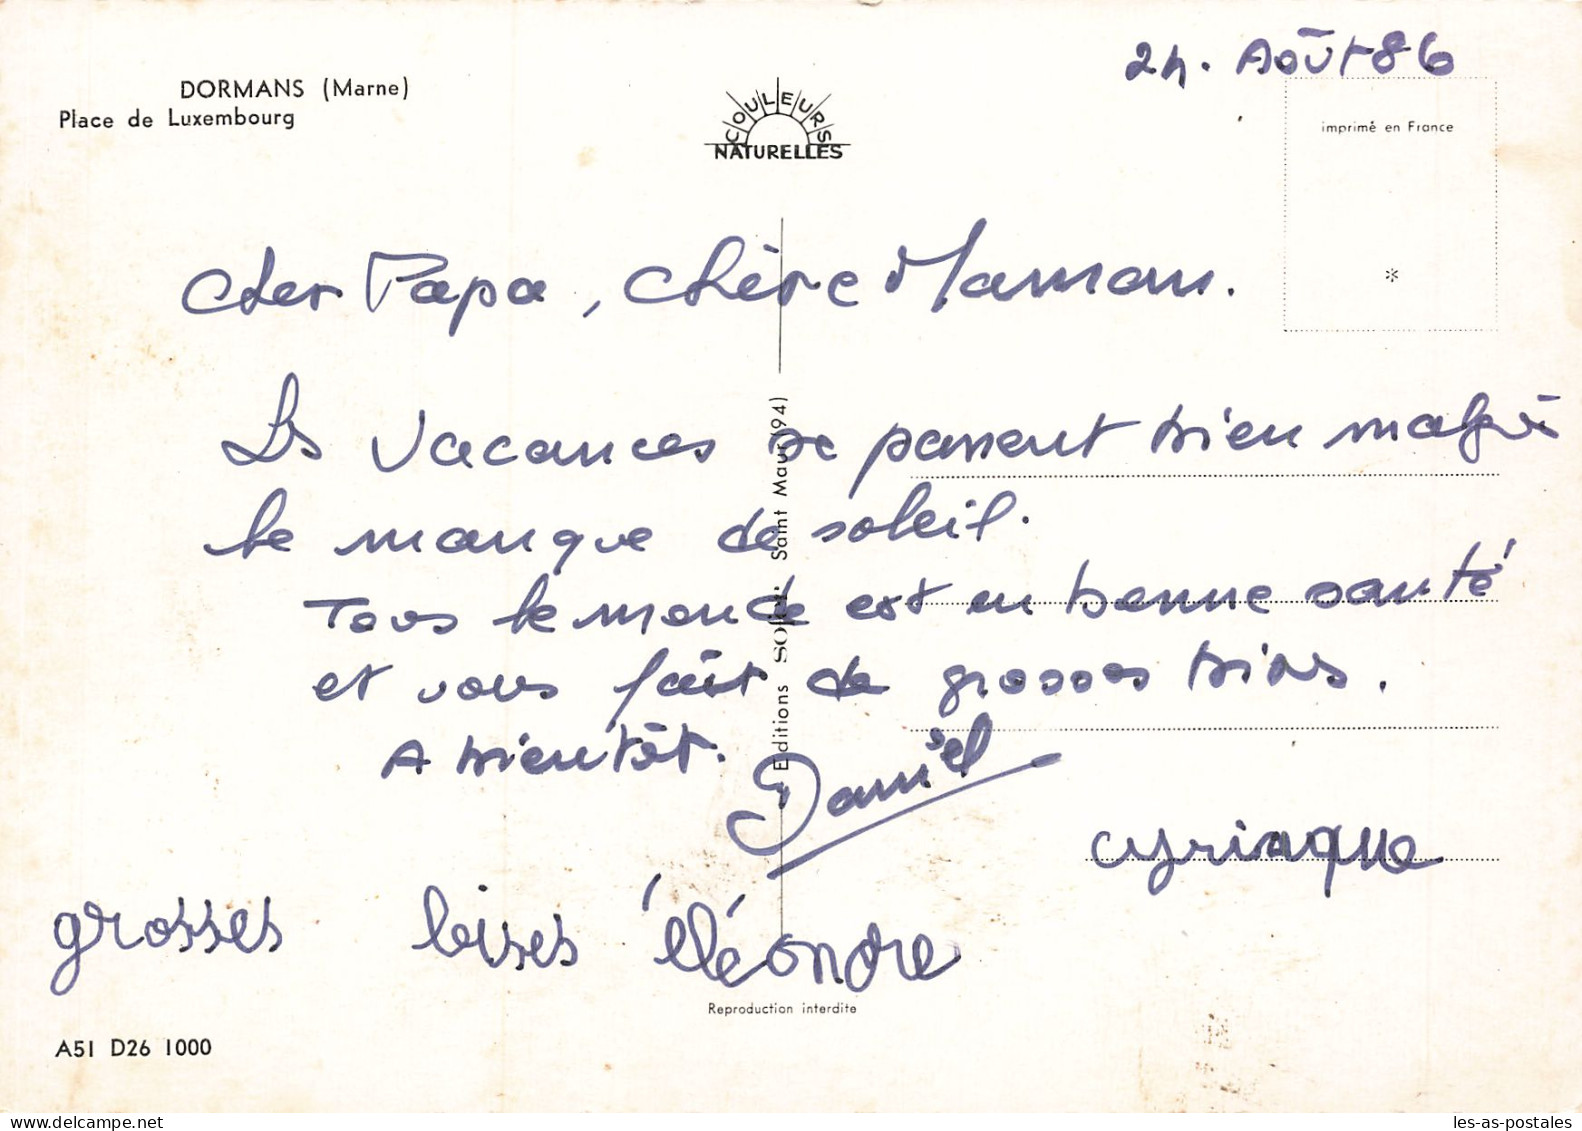 24. Août 86
DORMANS (Marne)
Place de Luxembourg
COULEURS
NATURELLES
imprimé en France
*
Cher Papa, chère Maman.
Les vacances se passent bien malgré
le manque de soleil.
Tous le monde est en bonne santé
et vous fait de grosses bises.
A bientôt.
Daniel
cyriaque
grosses bises éléondre
Editions SOFER. Saint Maur (94)
Reproduction interdite
A51 D26 1000
les-as-postales